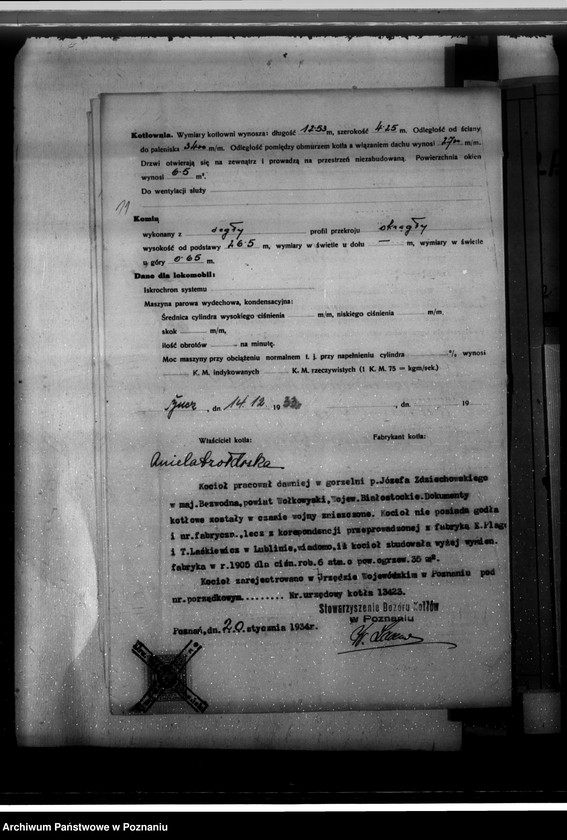 Kotłownia. Wymiary kotłowni wynoszą: długość 12·53 m, szerokość 4·25 m. Odległość od ściany
do paleniska m/m. Odległość pomiędzy obmurzem kotła a wiązaniem dachu wynosi m/m.
Drzwi otwierają się na zewnątrz i prowadzą na przestrzeń niezabudowaną. Powierzchnia okien
wynosi 6·5 m².
Do wentylacji służy
Komin
wykonany z cegły profil przekroju okrągły
wysokość od podstawy 26·5 m, wymiary w świetle u dołu — m, wymiary w świetle
u góry 0·65 m.
Dane dla lokomobil:
Iskrochron systemu
Maszyna parowa wydechowa, kondensacyjna:
Średnica cylindra wysokiego ciśnienia m/m, niskiego ciśnienia m/m
skok m/m,
ilość obrotów na minutę.
Moc maszyny przy obciążeniu normalnem t. j. przy napełnieniu cylindra % wynosi
K. M. indykowanych K. M. rzeczywistych (1 K. M. 75 = kgm/sek.)
, dn. 14.12 19 , dn. 19
Właściciel kotła: Fabrykant kotła:
Aniela
Kocioł pracował dawniej w gorzelni p.Józefa Zdziechowskiego
w maj.Bezwodna, powiat Wołkowyski, Wojew.Białostockie.Dokumenty
kotłowe zostały w czasie wojny zniszczone. Kocioł nie posiada godła
i nr.fabryczn., lecz z korespondencji przeprowadzonej z fabryką K.Plage
i T.Laśkiewicz w Lublinie, wiadomo, iż kocioł zbudowała wyżej wymien.
fabryka w r.1905 dla ciśn.rob.6 atm.o pow.ogrzew.35 m².
Kocioł zarejestrowano w Urzędzie Wojewódzkim w Poznaniu pod
nr.porządkowym........ Nr.urzędowy kotła 13423.
Stowarzyszenie Dozoru Kotłów
w Poznaniu
Poznań, dn. 20 stycznia 1934r.
Archiwum Państwowe w Poznaniu